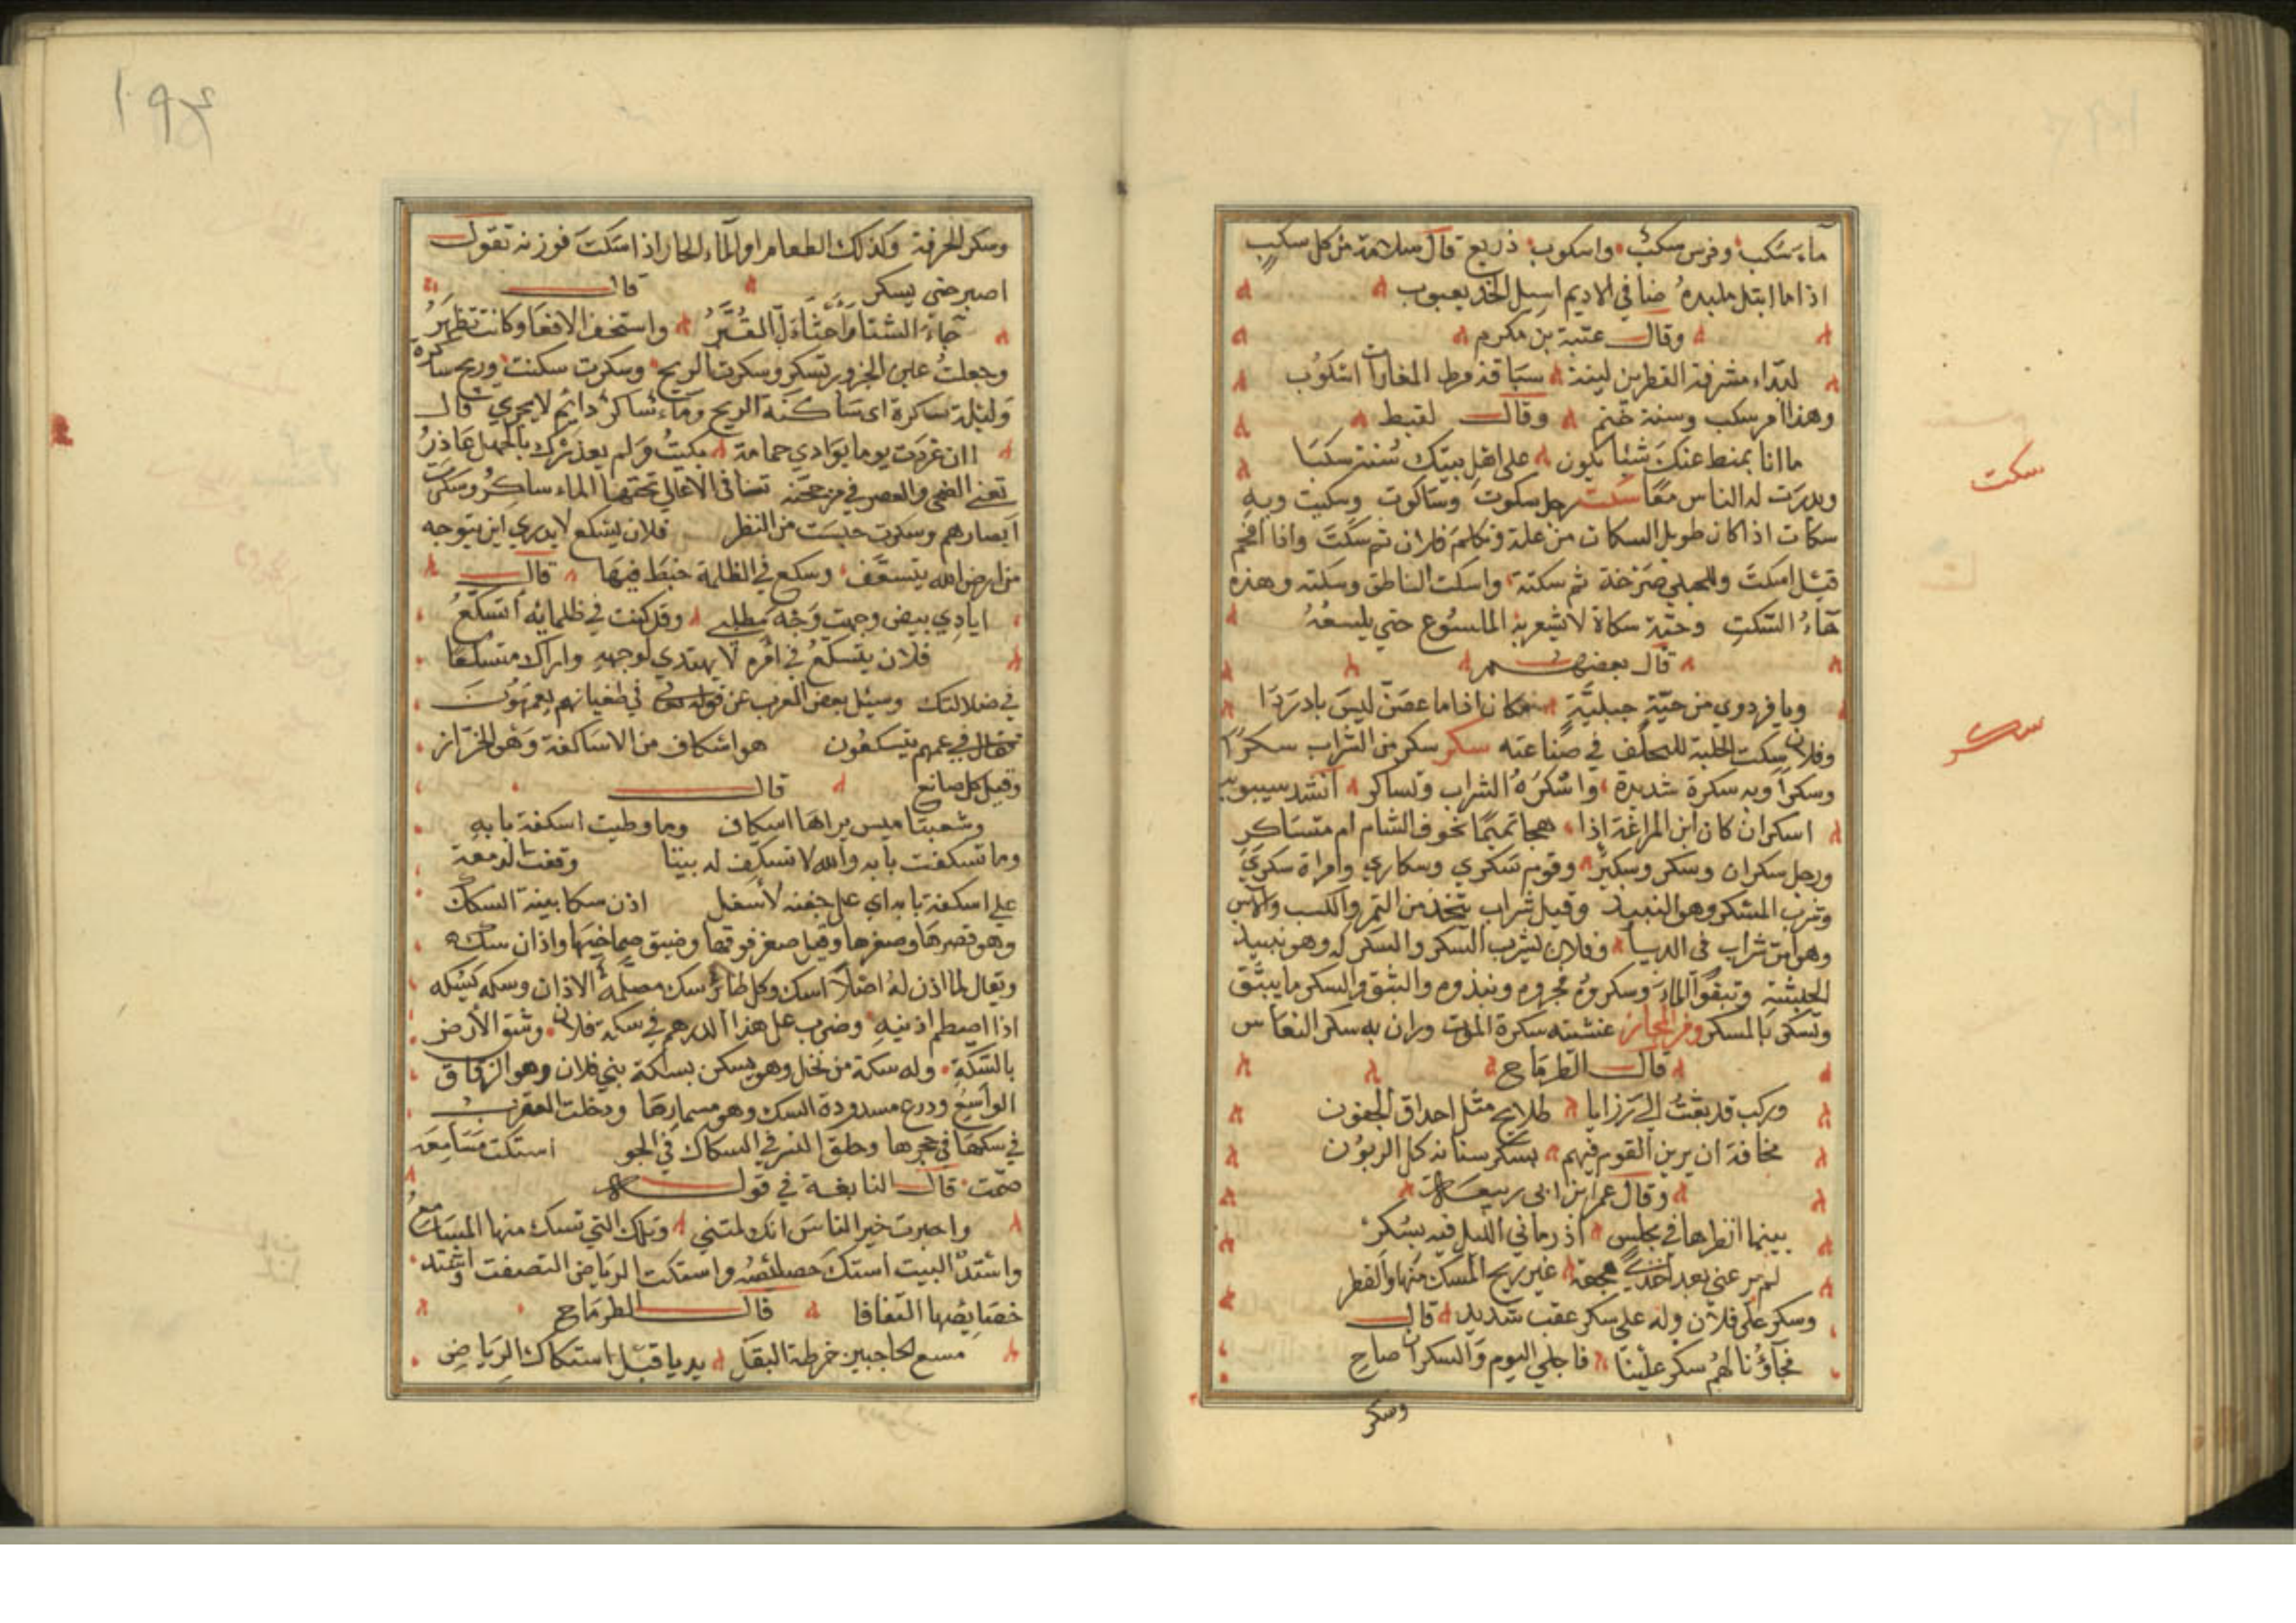 ماء سكب وفرس سكب واسكوب ذريع قال سلامة من كل سكب
اذا ما ابتل ملبده صافي الاديم اسيل الخد يعبوب
وقال عتبة بن مكرم
مشرفة القطرين لينة سباقة فرط الغارات اسكوب
وهذا امر سكب وسنة ختم وقال لقيط
ما انا بمنط عنك شيئا يكون على اهل بيتك سنة سكبا
وبدرت له الناس معا سكت رجل سكوت وساكوت وسكيت وبه
سكات اذا كان طويل السكات من علة وتكلم فلان ثم سكت واذا افحم
قيل اسكت وللحبلى صرخة ثم سكتة واسكت الناطق وسكته وهذه
هاء السكت وحية سكاة لا يشعر به الملسوع حتي يلسعه
سكت
قال بعضهم
وما فردوي من حية جبلية سكات اذا ما عض ليس بادردا
وفلان سكت الحلبة للمخلف في صناعته سكر سكر من الشراب سكرا
سكر
وسكرا وبه سكرة شديدة واسكره الشراب وتساكر انشد سيبويه
اسكران كان ابن المراغة اذا هجا تميما بجوف الشام ام متساكر
ورجل سكران وسكر وسكير وقوم سكري وسكاري وامراة سكري
وشرب المسكر وهو النبيذ وقيل شراب يتخذ من التمر والكسب والآس
وهو امر شراب في الدنيا وفلان يشرب السكر والسكركه وهو نبيذ
الحبشة وبثقوا الماء وسكروه فجروه ونبذوه والبثق والسكر ما يبثق
ويسكر بالمسكر ومن المجاز غشيته سكرة الموت وران به سكر النعاس
قال الطرماح
وركب قد بعثت الي رزايا طلايح مثل اخلاق الجفون
مخافة ان يرين القوم فيهم بسكر سناته كل الريون
وقال عمر بن ابي ربيعة
بينما انظرها في مجلس اذ رماني الليل فيه بسكر
لم يرعني بعد اخذي هجعة غير ريح المسك منها والقطر
وسكر على فلان وله علي سكر غضب شديد قال
فجاؤنا لهم سكر علينا فاجلي اليوم والسكران صاح
وسكر
١٩٤
وسكر الحر فتر وكذلك الطعام او الماء الحار اذا سكت فورته تقول
اصبر حتي يسكر قال
جاء الشتاء واجثال القبر واستخفت الافعا وكانت تظهر
وجعلت عين الحرور تسكر وسكرت الريح وسكرت سكنت وريح ساكرة
وليلة ساكرة اى ساكنة الريح وماء ساكر دايم لا يجري قال
اان غردت يوما بوادي حمامة بكيت ولم يعذرك بالجهل عاذر
تغني الضحي والعصر في مرجحنة تضا في الاعالي تحتها الماء ساكر وسكرت
ابصارهم وسكرت حبست من النظر فلان يتسكع لا يدري اين يتوجه
من ارض الله يتسعف وسكع في الظلمة خبط فيها قال
ايادي بيض وجهت وجه مطلبي وقد كنت في ظلمائه اتسكع
فلان يتسكع في امره لا يهتدي لوجهه واراك متسكعا
في ضلالتك وسئل بعض العرب عن قوله في طغيانهم يعمهون
فقال في عمههم يتسكعون هو اسكاف من الاساكفة وهو الخراز
وقيل كل صانع قال
وشعبتا ميس براها اسكاف وما وطيت اسكفة بابه
وما تسكفت بابه والله لا تسكف له بيتا وقفت الدمعة
علي اسكفة بابه اي على جفنه الاسفل اذن سكا بينة السكك
وهو قصرها وصغرها وقيل صغر فوقها وضيق صماخيها واذان سك
ويقال لما اذن له اصلا اسك وكل طائر سك مصلمة الاذان وسكه يسكه
اذا اصطلم اذنيه وضرب على هذا الدرهم في سكة فلان وشق الارض
بالسكة وله سكة من نخل وهو يسكن بسكة بني فلان وهو الزقاق
الواسع ودرع مسدودة السك وهو مسمارها ودخلت العقرب
في سكها في جحرها وحلق النسر في السكاك في الجو استكت مسامعه
صمت قال النابغة في قوله
واخبرت خير الناس انك لمتني وتلك التي تستك منها المسامع
واشتد البيت استك خصائصه واستكت الرياض التصقت واشتد
خصايصها التفافا قال الطرماح
مسع الحاجبين خرطه البقل بديا قبل استكاك الرياض